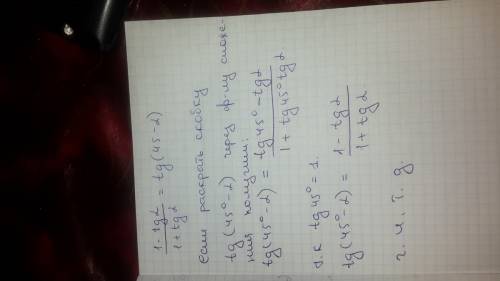 1 - tg2 / 1 + tg2 = tg(45 - 2)
если раскрыть скобку
tg(45° - 2) через ф-лу сложе-
ния получим:
tg(45° - 2) = tg45° - tg2 / 1 + tg45° tg2
т.к tg45° = 1.
tg(45° - 2) = 1 - tg2 / 1 + tg2
ч. и. т. д.